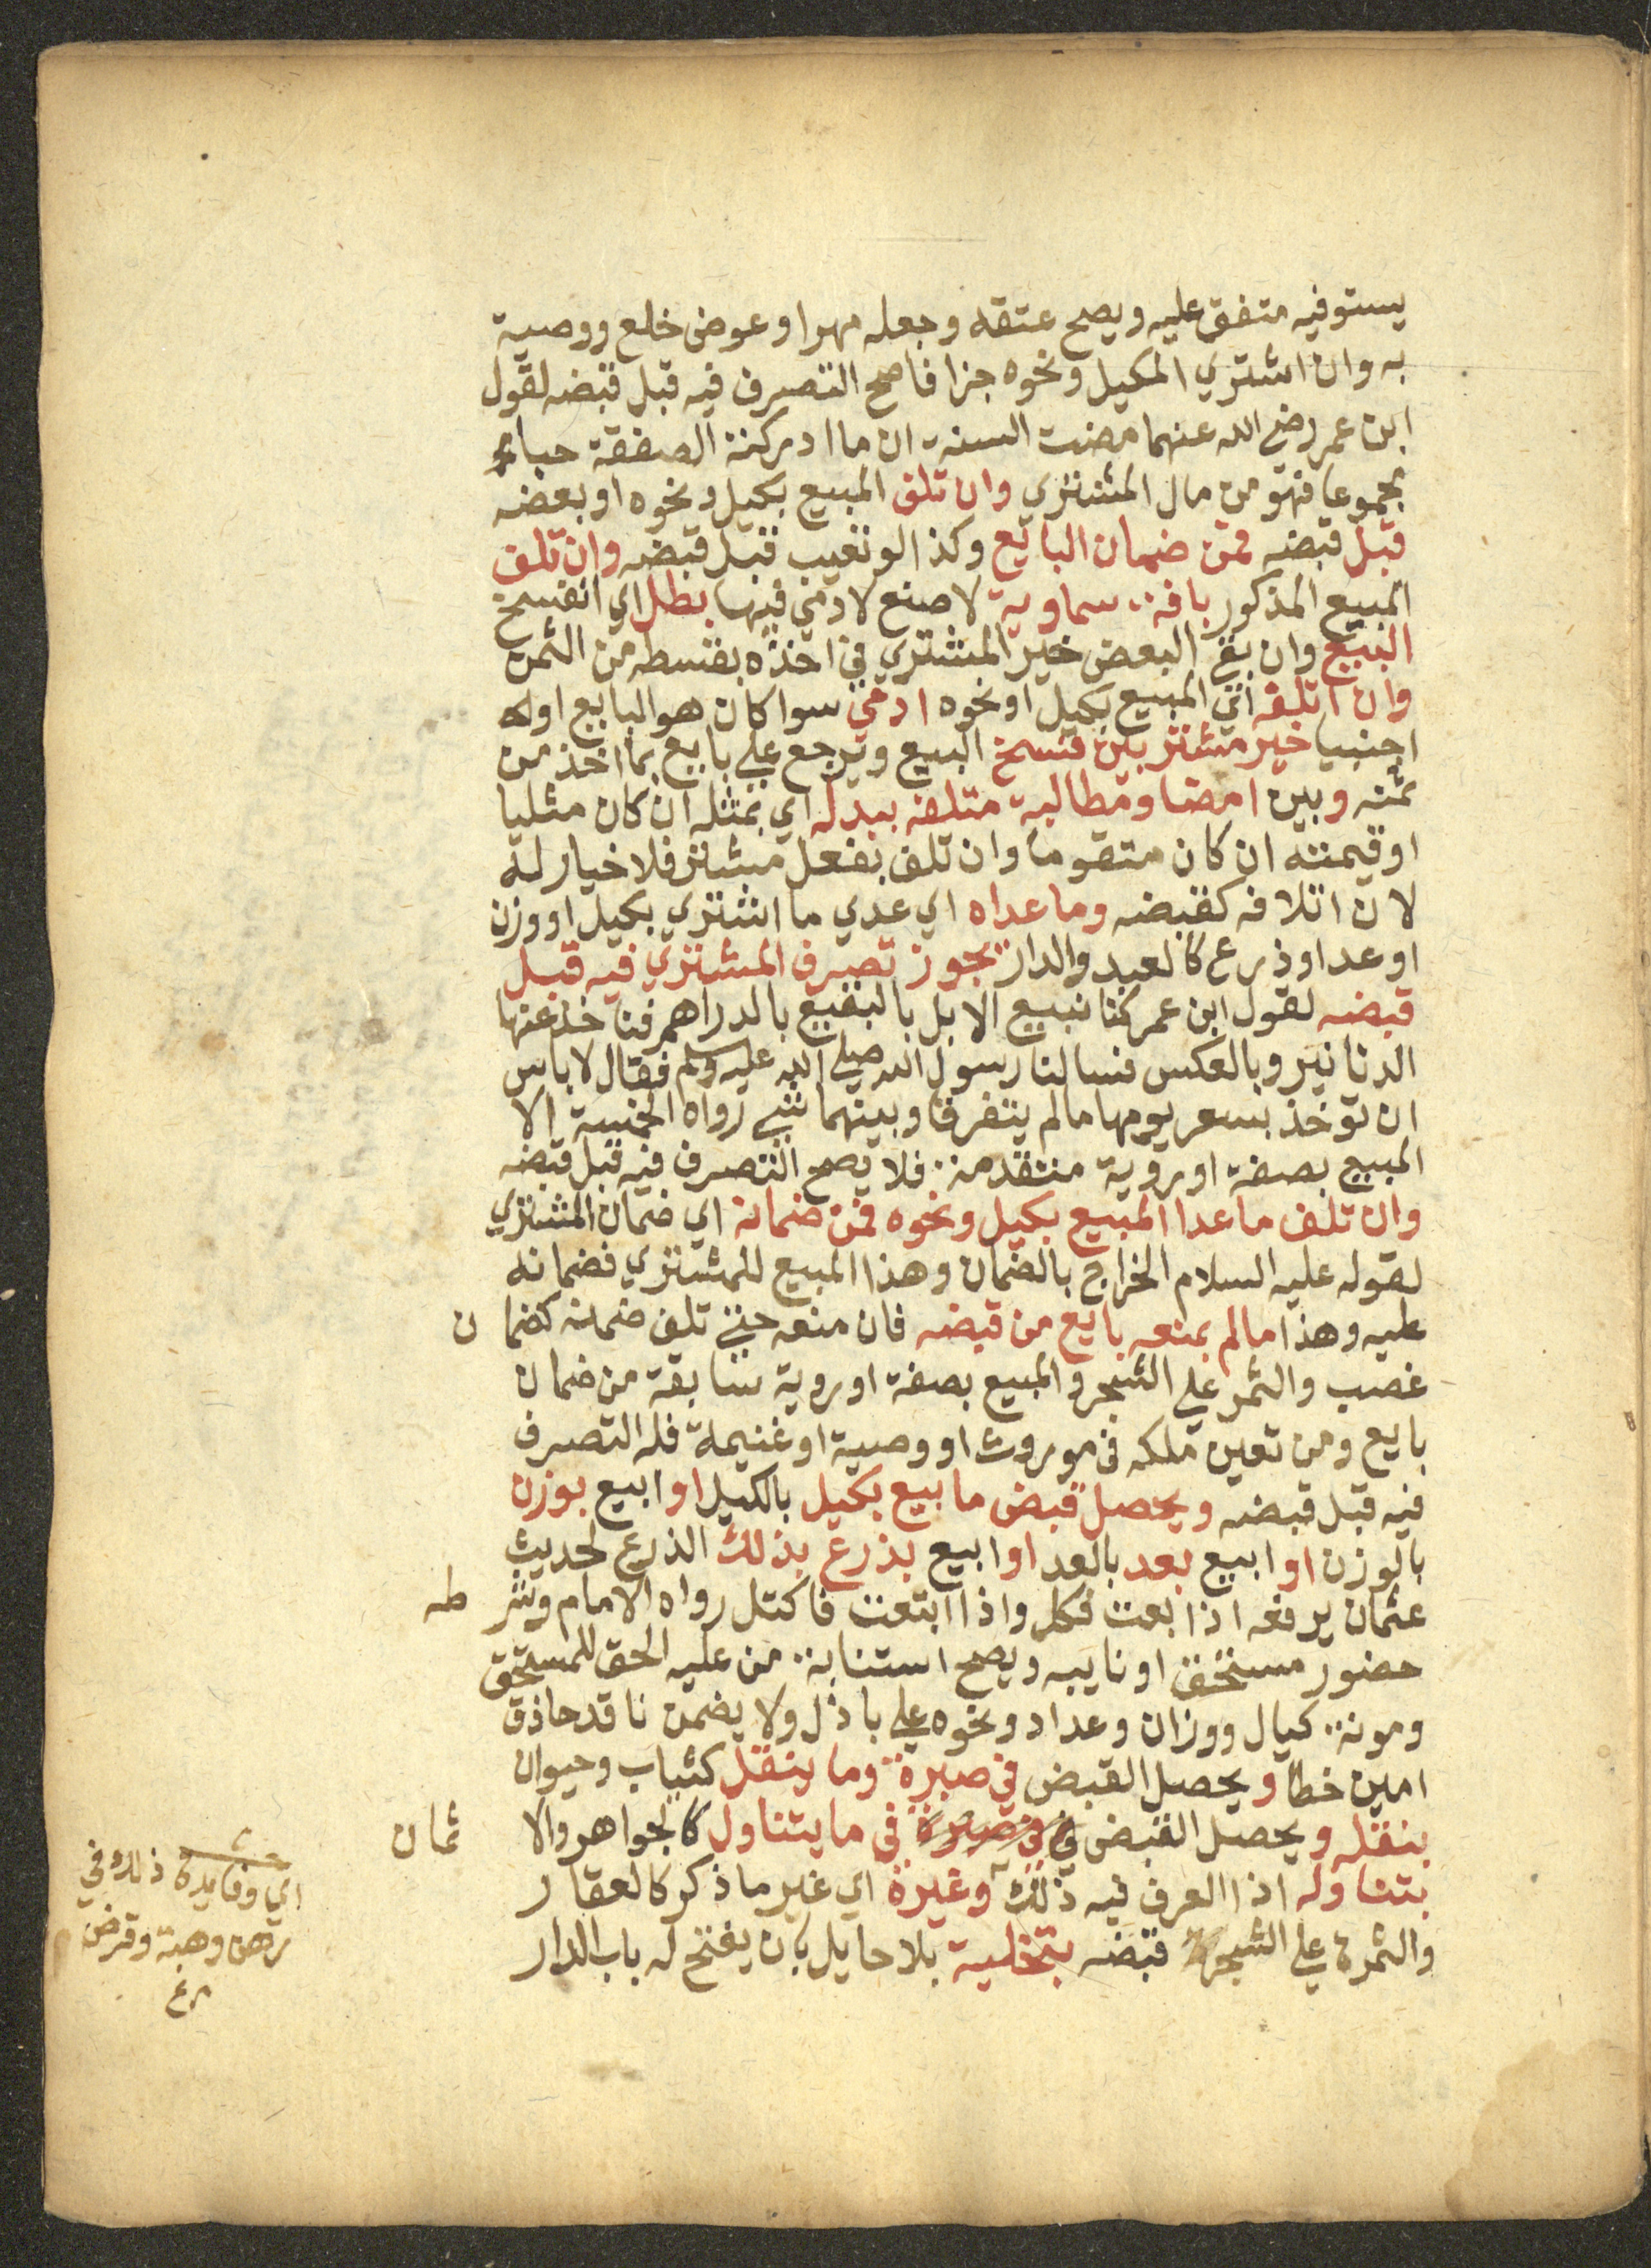 يستوفيه متفق عليه ويصح عتقه وجعله مهرا وعوض خلع ووصية
به وان اشتري المكيل ونحوه جزافا صح التصرف فيه قبل قبضه لقول
ابن عمر رضي الله عنهما مضت السنة ان ما ادركته الصفقة حبا
مجموعا فهو من مال المشتري وان تلف المبيع بكيل ونحوه او بعضه
قبل قبضه فمن ضمان البايع وكذا لو تعيب قبل قبضه وان تلف
المبيع المذكور بافة سماوية لا صنع لادمي فيها بطل اي انفسخ
البيع وان بقي البعض خير المشتري في اخذه بقسطه من الثمن
وان اتلفه اي المبيع بكيل او نحوه ادمي سوا كان هو البايع او
اجنبيا خير مشتر بين فسخ البيع ويرجع علي بايع بما اخذ من
ثمنه وبين امضا ومطالبة متلفه ببدله اي بمثله ان كان مثليا
او قيمته ان كان متقوما وان تلف بفعل مشتر فلا خيار له
لان اتلافه كقبضه وما عداه اي عدي ما اشتري بكيل او وزن
او عد او ذرع كالعبد والدار يجوز تصرف المشتري فيه قبل
قبضه لقول ابن عمر كنا نبيع الابل بالبقيع بالدراهم فناخذ عنها
الدنانير وبالعكس فسالنا رسول الله صلي الله عليه وسلم فقال لا باس
ان توخذ بسعر يومها ما لم يتفرقا وبينهما شي رواه الخمسة الا
المبيع بصفة او روية متقدمة فلا يصح التصرف فيه قبل قبضه
وان تلف ما عدا المبيع بكيل ونحوه فمن ضمانه اي ضمان المشتري
لقوله عليه السلام الخراج بالضمان وهذا المبيع للمشتري فضمانه
عليه وهذا ما لم يمنعه بايع من قبضه فان منعه حتي تلف ضمنه كضما ن
غصب والثمر علي الشجر والمبيع بصفة او روية سابقة من ضمان
بايع ومن تعين ملكه في موروث او وصية او غنيمة فله التصرف
فيه قبل قبضه ويحصل قبض ما بيع بكيل بالكيل او ابيع بوزن
بالوزن او ابيع بعد بالعد او ابيع بذرع بذلك الذرع لحديث
عثمان يرفعه اذا بعت فكل واذا ابتعت فاكتل رواه الامام وشر طه
حضور مستحق او نايبه ويصح استنابة من عليه الحق للمستحق
ومونة كيال ووزان وعداد ونحوه علي باذل ولا يضمن ناقد حاذق
امين خطا ويحصل القبض في صبرة وما ينقل كثياب وحيوان
بنقله ويحصل القبض في ما يتناول كالجواهر والا ثمان
بتناوله اذ العرف فيه ذلك وغيره اي غير ما ذكر كالعقار
والثمرة علي الشجر قبضه بتخلية بلا حايل بان يفتح له باب الدار
اي وفايدة ذلك في
رهن وهبة وقرض